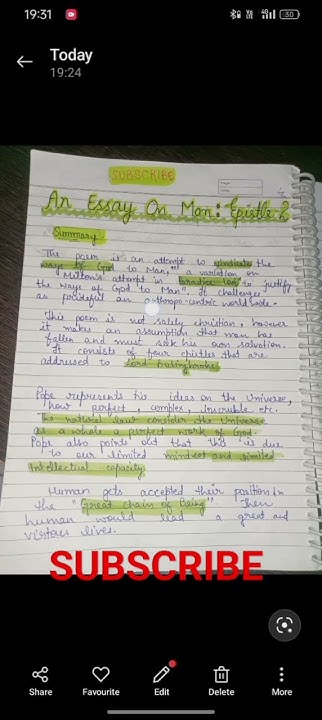 19:31
30
Today
19:24
SUBSCRIBE
An Essay On Man: Epistle-2
Summary
The poem is an attempt to vindicate the
ways of God to Man," a variation on
Milton's attempt in Paradise lost to justify
the ways of God to Man". It challenges
as prideful an anthropo-centric world wide.
This poem is not solely christian, however
it makes an assumption that man has
fallen and must seek his own salvation.
It consists of four epistles that are
addressed to Lord Bolingbroke
Pope represents his ideas on the Universe,
how perfect, complex, etc.
The natural laws consider the Universe
as a whole a perfect work of God.
Pope also points out that this is due
to our limited mindset and limited
intellectual capacity.
Human gets accepted their position in
the "Great chain of Being". Then
human would lead a great and
lives.
SUBSCRIBE
Share
Favourite
Edit
Delete
More